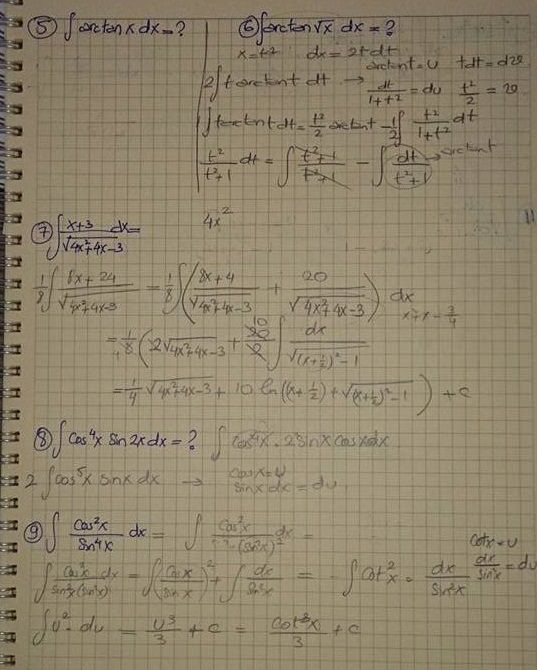 ⑤ ∫ arctan x dx = ?
⑥ ∫ arctan √x dx = ?
x = t² dx = 2t dt
2∫ t arctant dt → arctant = u t dt = dv
dt/(1+t²) = du t²/2 = v
∫ t arctant dt = t²/2 arctant - 1/2 ∫ t²/(1+t²) dt
t²/(t²+1) dt = ∫ (t²+1)/(t²+1) - ∫ dt/(t²+1) → arctant
⑦ ∫ (x+3)/√(4x²+4x-3) dx =
4x²
1/8 ∫ (8x+24)/√(4x²+4x-3) = 1/8 ∫ ( (8x+4)/√(4x²+4x-3) + 20/√(4x²+4x-3) ) dx
x²+x - 3/4
= 1/8 ( 2√(4x²+4x-3) + 20/2 10 ∫ dx/√((x+1/2)²-1)
= 1/4 √(4x²+4x-3) + 10 ln((x+1/2) + √((x+1/2)²-1) ) + c
⑧ ∫ cos⁴x sin2x dx = ? ∫ cos⁴x . 2 sinx cosx dx
2 ∫ cos⁵x sinx dx → cosx = u
sinx dx = du
⑨ ∫ cos²x/sin⁴x dx = ∫ cos²x/(sin²x)² dx =
cotx = u
∫ cos²x dx/(sin²x(sin²x)) = ∫ (cosx/sinx)² + ∫ dx/sin²x = - ∫ cot²x . dx/sin²x
dx/sin²x = du
∫ u² . du = u³/3 + c = cot³x/3 + c